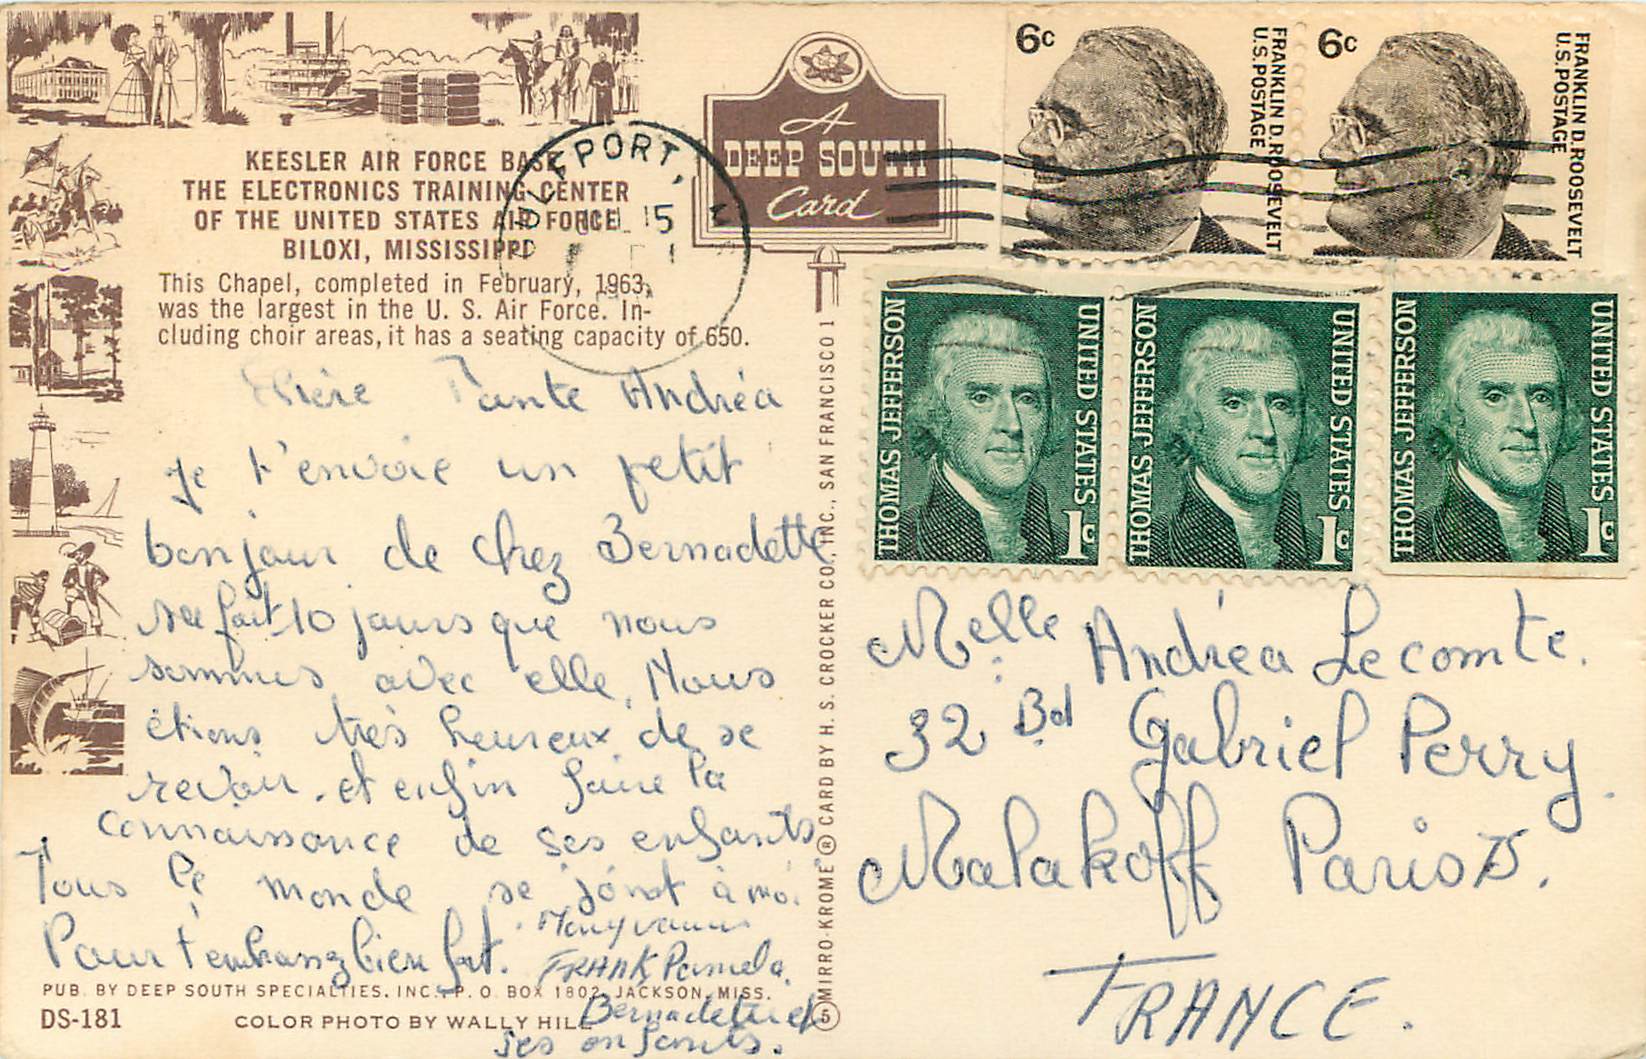 KEESLER AIR FORCE BASE
THE ELECTRONICS TRAINING CENTER
OF THE UNITED STATES AIR FORCE
BILOXI, MISSISSIPPI
This Chapel, completed in February, 1963,
was the largest in the U. S. Air Force. In-
cluding choir areas, it has a seating capacity of 650.
A
DEEP SOUTH
Card
GULFPORT,
JUL 15
6c
FRANKLIN D. ROOSEVELT
U.S. POSTAGE
6c
FRANKLIN D. ROOSEVELT
U.S. POSTAGE
THOMAS JEFFERSON
UNITED STATES
1c
THOMAS JEFFERSON
UNITED STATES
1c
THOMAS JEFFERSON
UNITED STATES
1c
Chère Tante Andréa
Je t'envoie un petit
bonjour de chez Bernadette
sa fait 10 jours que nous
sommes avec elle. Nous
étions très heureux de se
revoir. et enfin faire la
connaissance de ses enfants
Tous le monde se joint à moi
Pour t'embrassez bien fort.
FRANK Pamela
Bernadette et
ses enfants.
Melle Andréa Lecomte.
32 Bd Gabriel Perry
Malakoff Paris
FRANCE.
MIRRO-KROME ® CARD BY H. S. CROCKER CO. INC., SAN FRANCISCO 1
5
PUB. BY DEEP SOUTH SPECIALTIES, INC., P. O. BOX 1802, JACKSON, MISS.
DS-181
COLOR PHOTO BY WALLY HILL